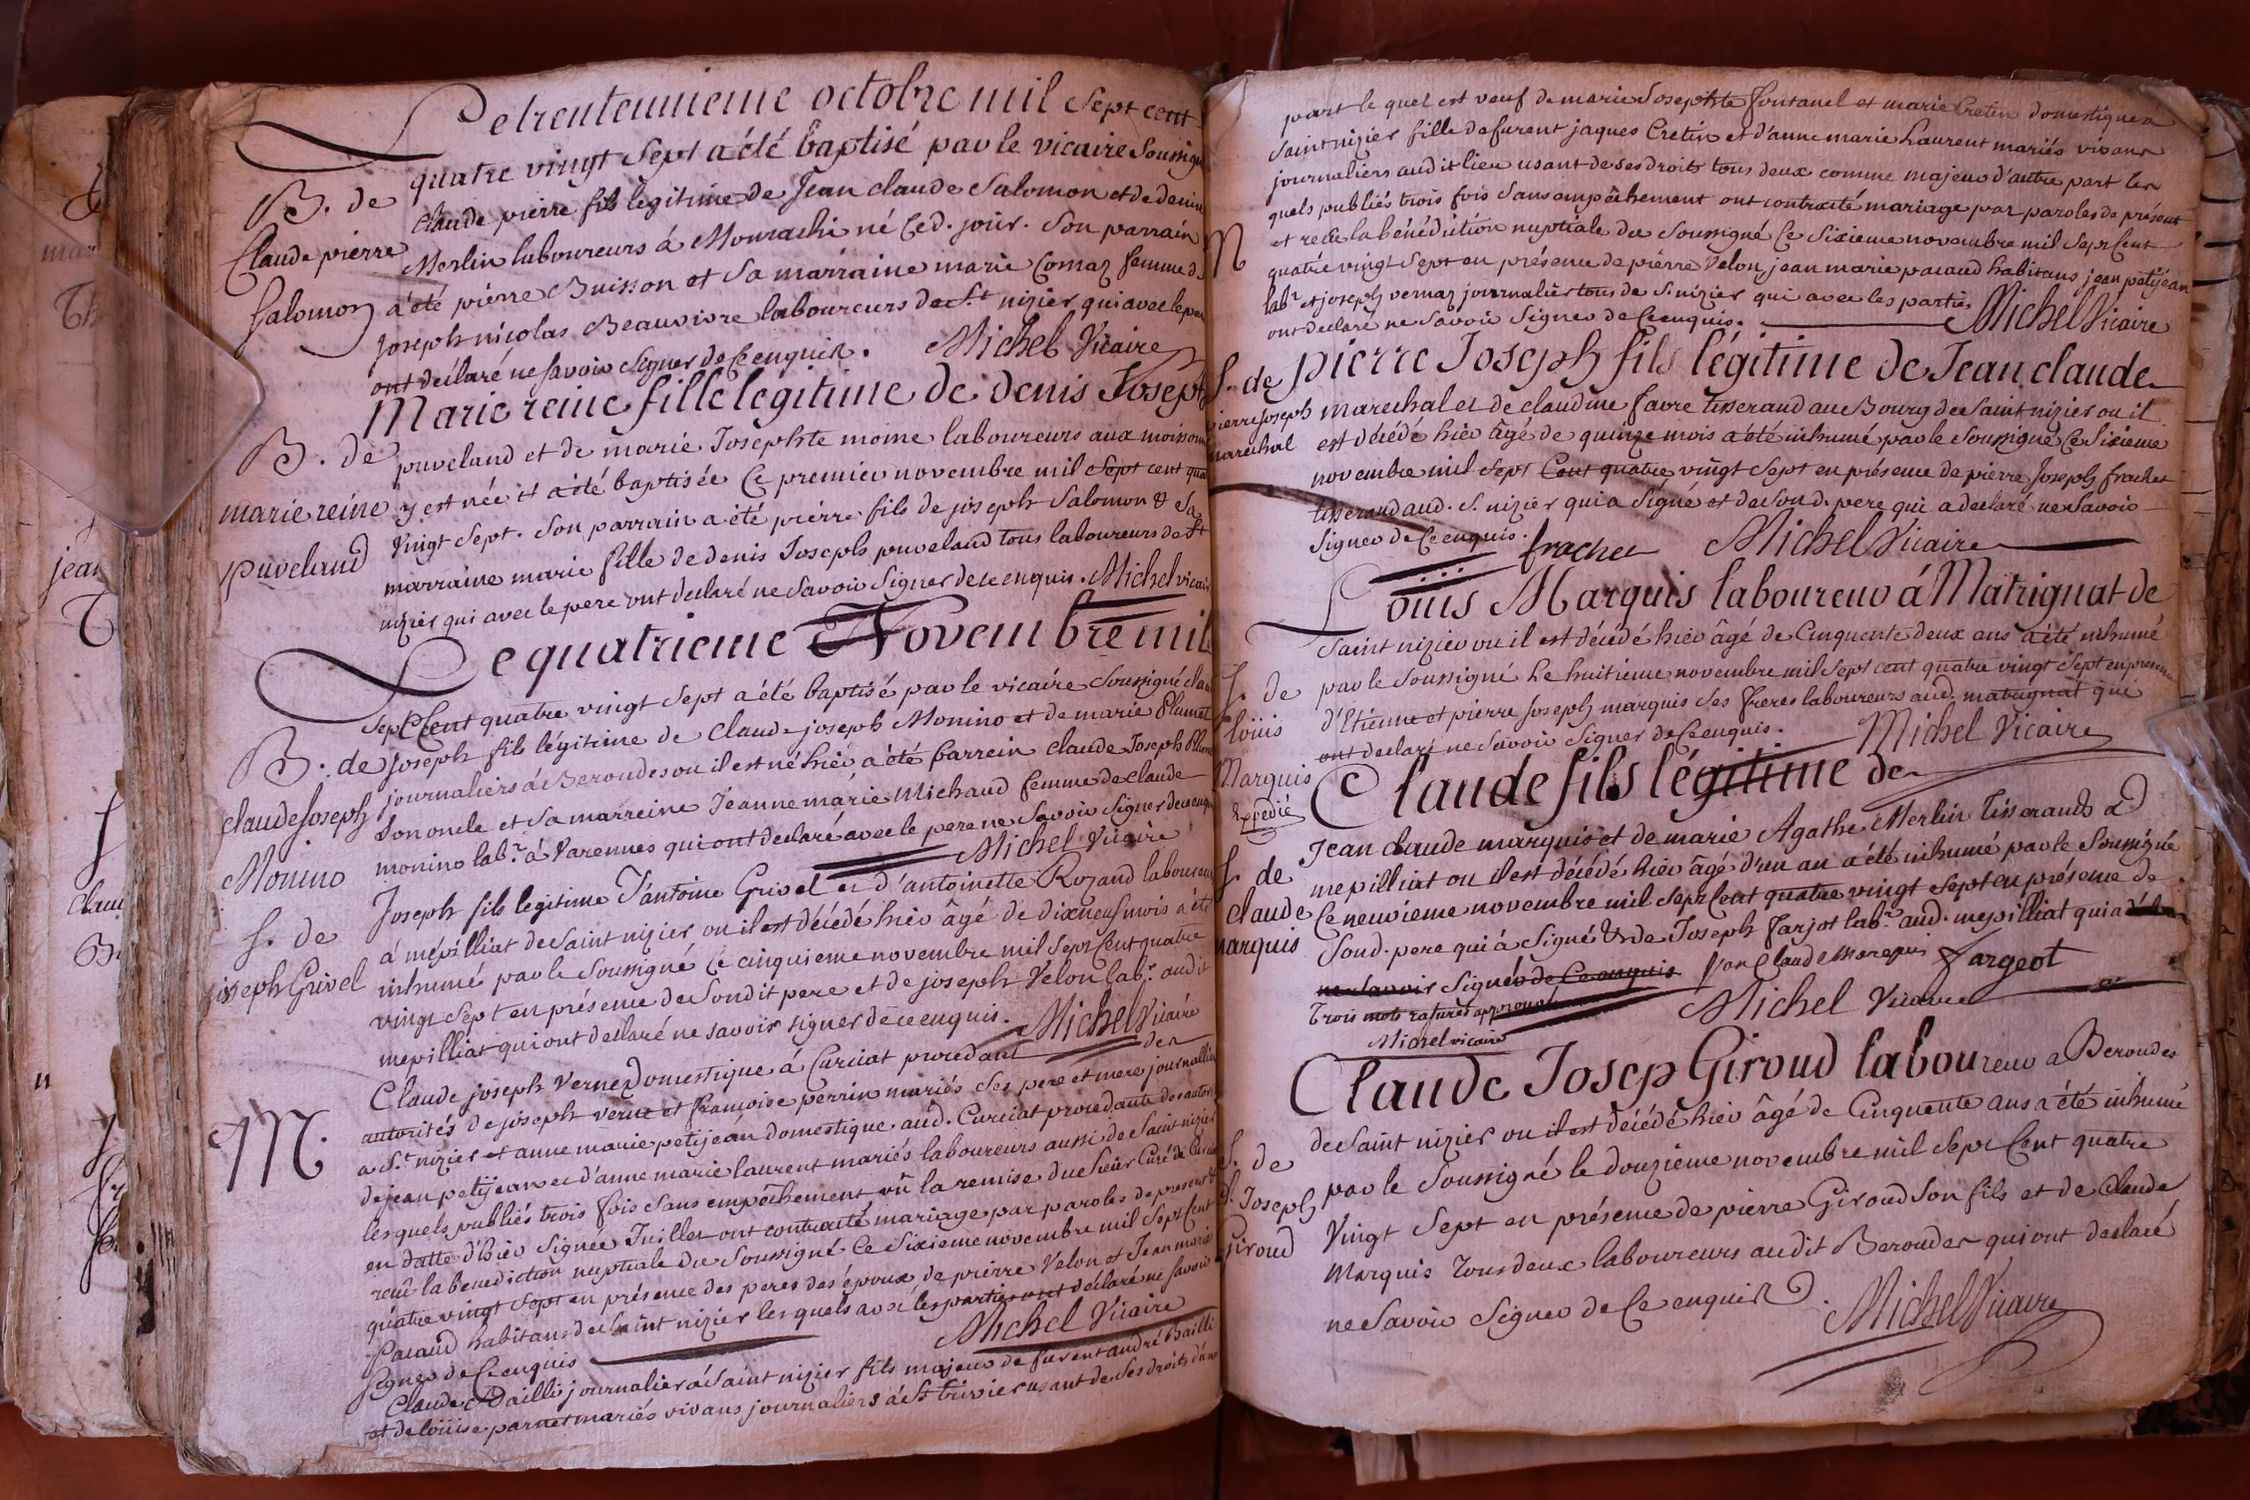 Le trenteunieme octobre mil sept cent
quatre vingt sept a été baptisé par le vicaire soussigné
B. de
claude pierre fils legitime de Jean claude Salomon et de denise
Claude pierre
Merlin laboureurs á Monrachi né Ced. jour. Son parrain
Salomon
a été pierre Buisson et Sa marraine marie Comaz femme de
joseph nicolas Beauvoire laboureurs de St nizier qui avec le pere
ont déclaré ne Savoir Signer de Ce enquis. Michel Vicaire
Marie reine fille legitime de denis Joseph
B. de
puveland et de marie Josephte moine laboureurs aux moissons
marie reine
y est née et a été baptisée Ce premier novembre mil Sept cent quatre
Vingt Sept. Son parrain a été pierre fils de joseph Salomon & Sa
puveland
marraine marie fille de denis Joseph puveland tous laboureurs de St
nizier qui avec le pere ont declaré ne Savoir Signer de ce enquis. Michel vicaire
Le quatrieme Novembre mil
Sept Cent quatre vingt Sept a été baptisé par le vicaire Soussigné claude
B. de
joseph fils légitime de Claude joseph Monino et de marie Plumet
journaliers á Beroudes ou il est né hier a été Parrein claude Joseph Plumet
claude Joseph
Son oncle et Sa marreine Jeanne marie Michaud femme de claude
Monino
monino labr. á Varennes qui ont declaré avec le pere ne Savoir Signer de ce enquis
Michel Vicaire
Joseph fils legitime d'antoine Grivel et d'antoinette Rozand laboureurs
S. de
á mépilliat de Saint nizier ou il est décédé hier âgé de dixneuf mois a été
joseph Grivel
inhumé par le Soussigné Ce cinquieme novembre mil Sept Cent quatre
vingt Sept en présence de Sondit pere et de joseph Vélon labr. audit
mepilliat qui ont declaré ne savoir signer de ce enquis. Michel Vicaire
Claude joseph Verne Domestique á Curciat procedant des
M.
autorités de joseph verne et françoise perrin mariés Ses pere et mere journaliers
a St nizier et anne marie petijean domestique aud. Curciat procedante des autorités
de jean petijean et d'anne marie laurent mariés laboureurs aussi de Saint nizier
lesquels publiés trois fois Sans empêchement vû la remise du Sieur Curé de Curciat
en datte d'hier Signée Juillet ont contracté mariage par paroles de present &
reçû la benediction nuptiale du Soussigné Ce Sixieme novembre mil Sept Cent
quatre vingt sept en présence des peres des époux de pierre Velon et Jean marie
Pacaud habitans de Saint nizier lesquels avec les parties ont déclaré ne savoir
Signer de Ce enquis Michel Vicaire
Claude Bailli journalier á Saint nizier fils majeur de furent andré Bailli
et de loüise parnet mariés vivans journaliers á St trivier usant de Ses droits d'une
part le quel est veuf de marie Josephte fontanel et marie Cretin domestique a
Saint nizier fille de furent jaques Cretin et d'anne marie Laurent mariés vivans
journaliers audit lieu usant de ses droits tous deux comme majeurs d'autre part les
quels publiés trois fois Sans empêchement ont contracté mariage par paroles de présent
et reçu la bénédiction nuptiale du Soussigné Ce Sixieme novembre mil Sept Cent
M
quatre vingt Sept en présence de pierre Velon, jean marie pacaud habitans jean petijean
labr. et joseph vernaz journaliers tous de S. nizier qui avec les parties
ont declaré ne Savoir Signer de Ce enquis. Michel Vicaire
Pierre Joseph fils légitime de Jean claude
S. de
pierre joseph
marechal
marechal et de claudine favre tisserand au Bourg de Saint nizier ou il
est décédé hier âgé de quinze mois a été inhumé par le Soussigné Ce Sixieme
novembre mil Sept Cent quatre vingt Sept en présence de pierre Joseph frachet
tisserand aud. S. nizier qui a Signé et de Son d. pere qui a declaré ne Savoir
Signer de Ce enquis. frachet Michel Vicaire
Louis Marquis laboureur á Matrignat de
Saint nizier ou il est décédé hier âgé de Cinquente deux ans a été inhumé
S. de
par le Soussigné Le huitieme novembre mil Sept cent quatre vingt Sept en presence
Loüis
d'Etienne et pierre joseph marquis Ses freres laboureurs aud. matrignat qui
ont declaré ne Savoir Signer de Ce enquis. Michel Vicaire
Marquis
Expedié
Claude fils légitime de
Jean claude marquis et de marie Agathe Merlin tisserands a
S. de
mepilliat ou il est décédé hier âgé d'un an a été inhumé par le Soussigné
claude
Ce neuvieme novembre mil Sept Cent quatre vingt Sept en présence de
marquis
Sond. pere qui á Signé & de Joseph Farjot labr. aud. mepilliat qui a
ne Savoir Signer de Ce enquis Jan Claude Fargeot
Trois mots raturés approuvés Michel Vicaire
Michel vicaire
Claude Josep Giroud laboureur a Beroudes
de Saint nizier ou il est décédé hier âgé de Cinquente ans a été inhumé
S. de
par le Soussigné le douzieme novembre mil Sept Cent quatre
Joseph
Vingt Sept en présence de pierre Giroud Son fils et de Claude
Giroud
Marquis Tous deux laboureurs audit Beroudes qui ont declaré
ne Savoir Signer de Ce enquis. Michel Vicaire